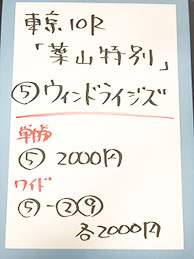 東京10R
「葉山特別」
⑤ウィンドライジズ
単勝
⑤ 2000円
ワイド
⑤-②⑨
各2000円